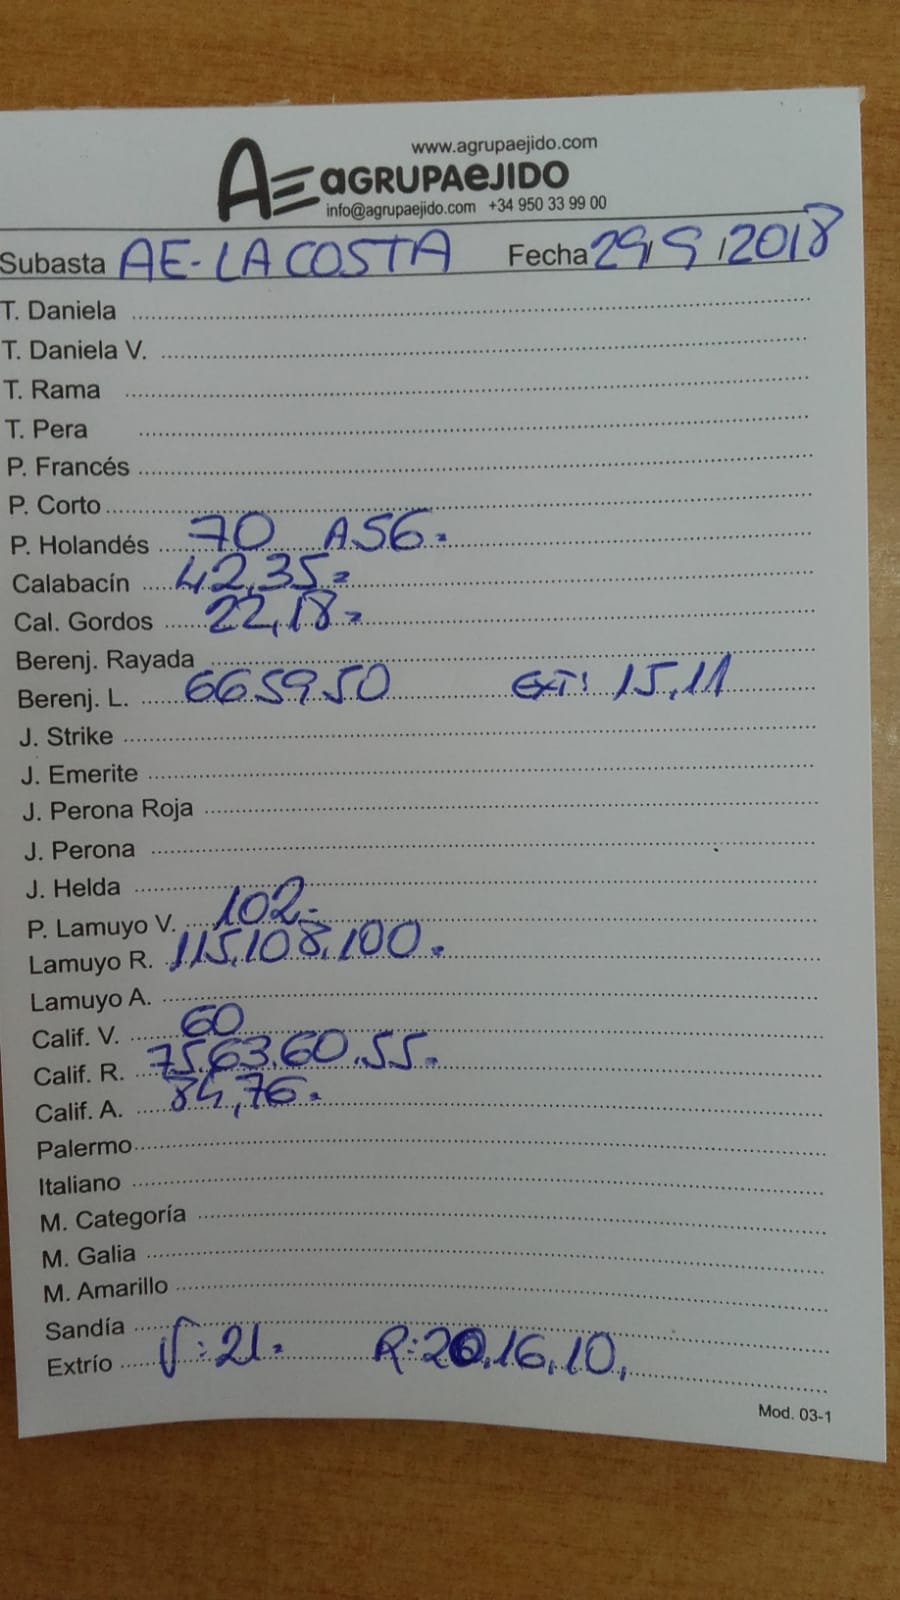 www.agrupaejido.com
AE aGRUPAeJIDO
info@agrupaejido.com +34 950 33 99 00
Subasta AE-LA COSTA Fecha 29/9/2018
T. Daniela
T. Daniela V.
T. Rama
T. Pera
P. Francés
P. Corto
P. Holandés 70 A56.
Calabacín 42,35.
Cal. Gordos 22,18.
Berenj. Rayada
Berenj. L. 66.59.50 EXT: 15,11
J. Strike
J. Emerite
J. Perona Roja
J. Perona
J. Helda
P. Lamuyo V. 102.
Lamuyo R. 115.108.100.
Lamuyo A.
Calif. V. 60
Calif. R. 75.63.60.55.
Calif. A. 84,76.
Palermo
Italiano
M. Categoría
M. Galia
M. Amarillo
Sandía
Extrío V:21. R:20.16,10,
Mod. 03-1